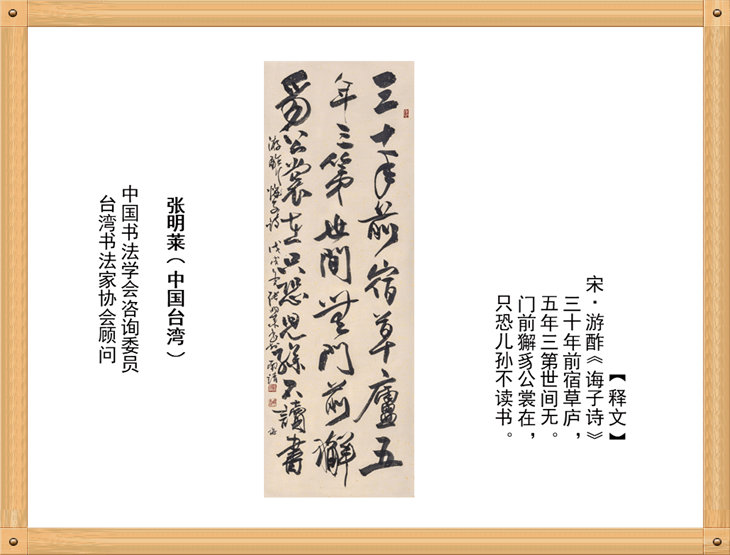 【释文】
宋·游酢《诲子诗》
三十年前宿草庐，
五年三第世间无。
门前獬豸公裳在，
只恐儿孙不读书。
三十年前宿草廬五
年三第世間無門前獬
豸公裳在只恐兒孫不讀書
游酢誨子詩 戊戌
张明莱（中国台湾）
中国书法学会咨询委员
台湾书法家协会顾问